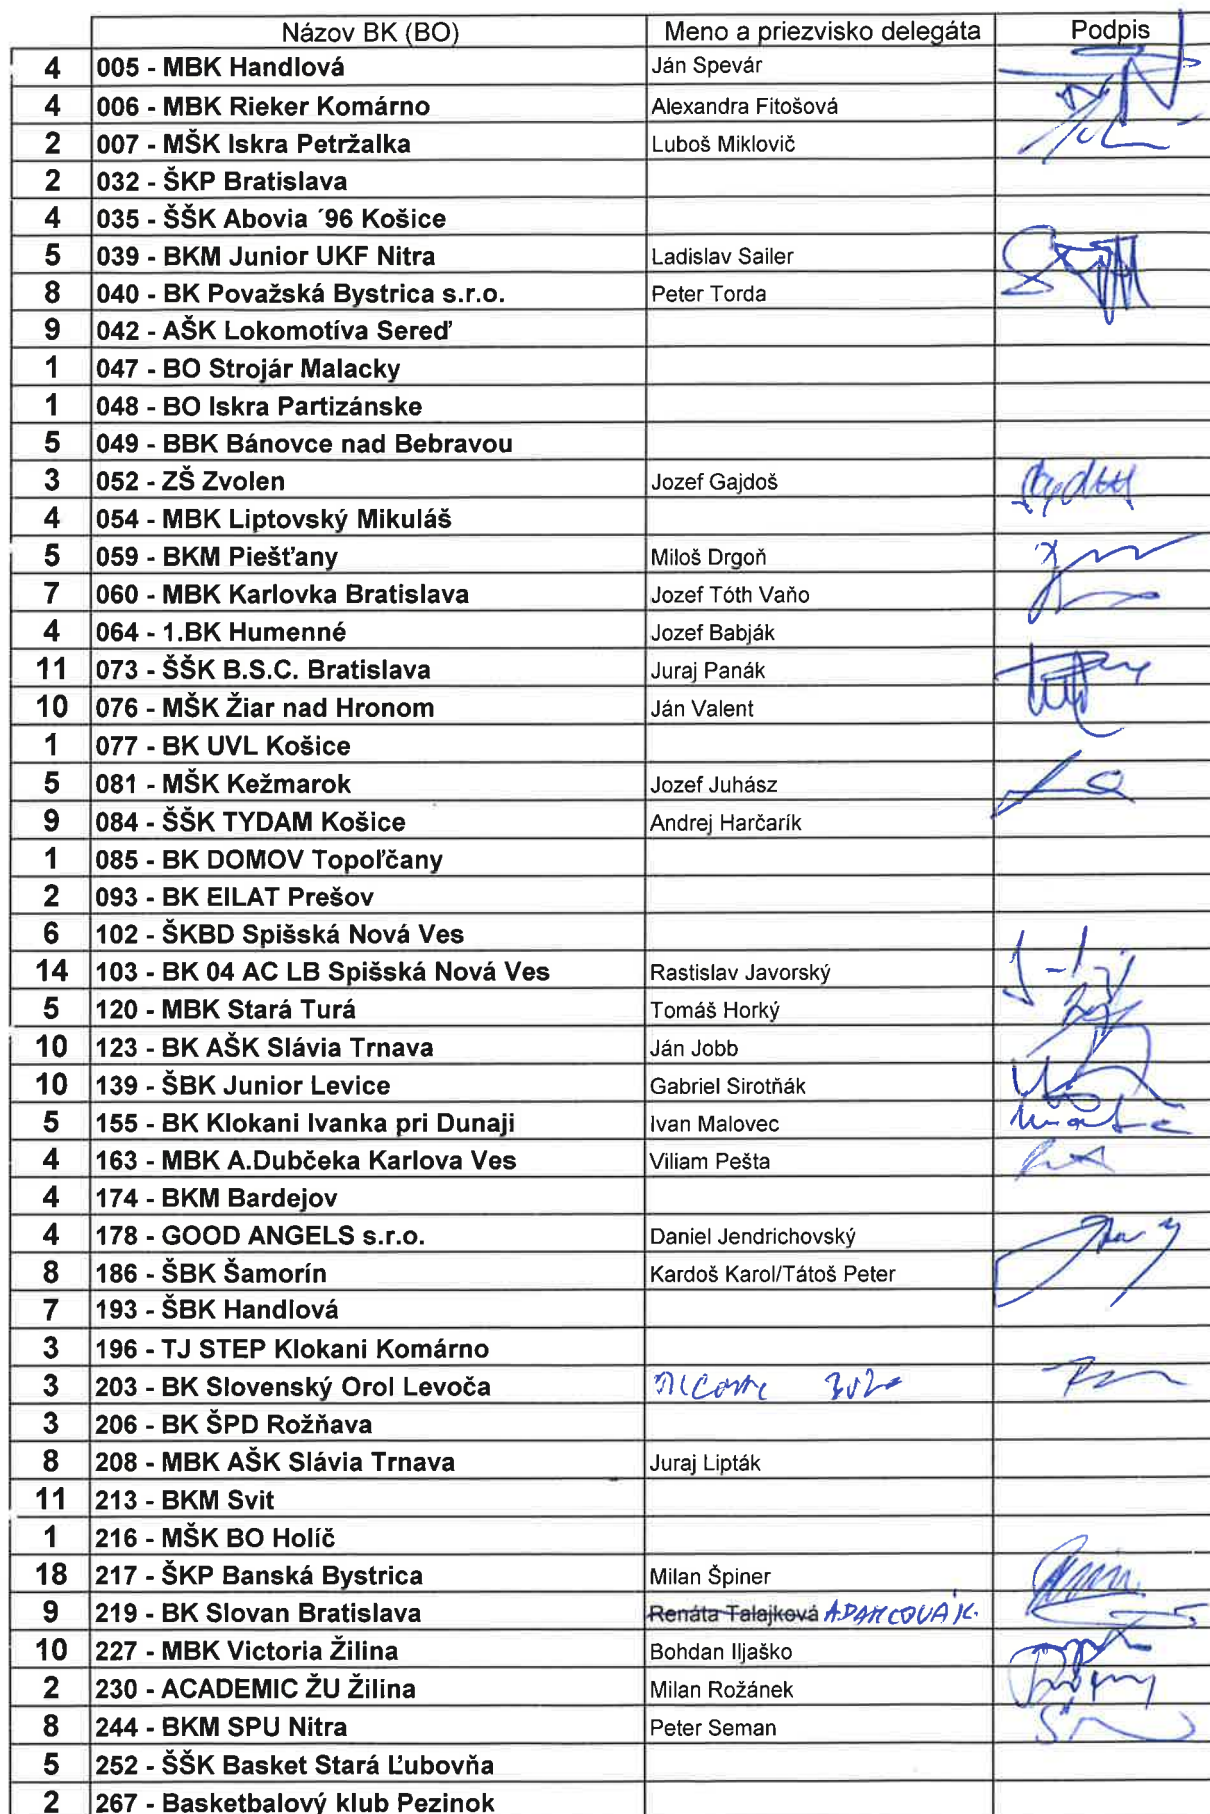 Názov BK (BO) Meno a priezvisko delegáta Podpis
4 005 - MBK Handlová Ján Spevár
4 006 - MBK Rieker Komárno Alexandra Fitošová
2 007 - MŠK Iskra Petržalka Luboš Miklovič
2 032 - ŠKP Bratislava
4 035 - ŠŠK Abovia ´96 Košice
5 039 - BKM Junior UKF Nitra Ladislav Sailer
8 040 - BK Považská Bystrica s.r.o. Peter Torda
9 042 - AŠK Lokomotíva Sereď
1 047 - BO Strojár Malacky
1 048 - BO Iskra Partizánske
5 049 - BBK Bánovce nad Bebravou
3 052 - ZŠ Zvolen Jozef Gajdoš
4 054 - MBK Liptovský Mikuláš
5 059 - BKM Piešťany Miloš Drgoň
7 060 - MBK Karlovka Bratislava Jozef Tóth Vaňo
4 064 - 1.BK Humenné Jozef Babják
11 073 - ŠŠK B.S.C. Bratislava Juraj Panák
10 076 - MŠK Žiar nad Hronom Ján Valent
1 077 - BK UVL Košice
5 081 - MŠK Kežmarok Jozef Juhász
9 084 - ŠŠK TYDAM Košice Andrej Harčarík
1 085 - BK DOMOV Topoľčany
2 093 - BK EILAT Prešov
6 102 - ŠKBD Spišská Nová Ves
14 103 - BK 04 AC LB Spišská Nová Ves Rastislav Javorský
5 120 - MBK Stará Turá Tomáš Horký
10 123 - BK AŠK Slávia Trnava Ján Jobb
10 139 - ŠBK Junior Levice Gabriel Sirotňák
5 155 - BK Klokani Ivanka pri Dunaji Ivan Malovec
4 163 - MBK A.Dubčeka Karlova Ves Viliam Pešta
4 174 - BKM Bardejov
4 178 - GOOD ANGELS s.r.o. Daniel Jendrichovský
8 186 - ŠBK Šamorín Kardoš Karol/Tátoš Peter
7 193 - ŠBK Handlová
3 196 - TJ STEP Klokani Komárno
3 203 - BK Slovenský Orol Levoča
3 206 - BK ŠPD Rožňava
8 208 - MBK AŠK Slávia Trnava Juraj Lipták
11 213 - BKM Svit
1 216 - MŠK BO Holíč
18 217 - ŠKP Banská Bystrica Milan Špiner
9 219 - BK Slovan Bratislava Renáta Talajková ADAMCOVÁ K.
10 227 - MBK Victoria Žilina Bohdan Iljaško
2 230 - ACADEMIC ŽU Žilina Milan Rožánek
8 244 - BKM SPU Nitra Peter Seman
5 252 - ŠŠK Basket Stará Ľubovňa
2 267 - Basketbalový klub Pezinok